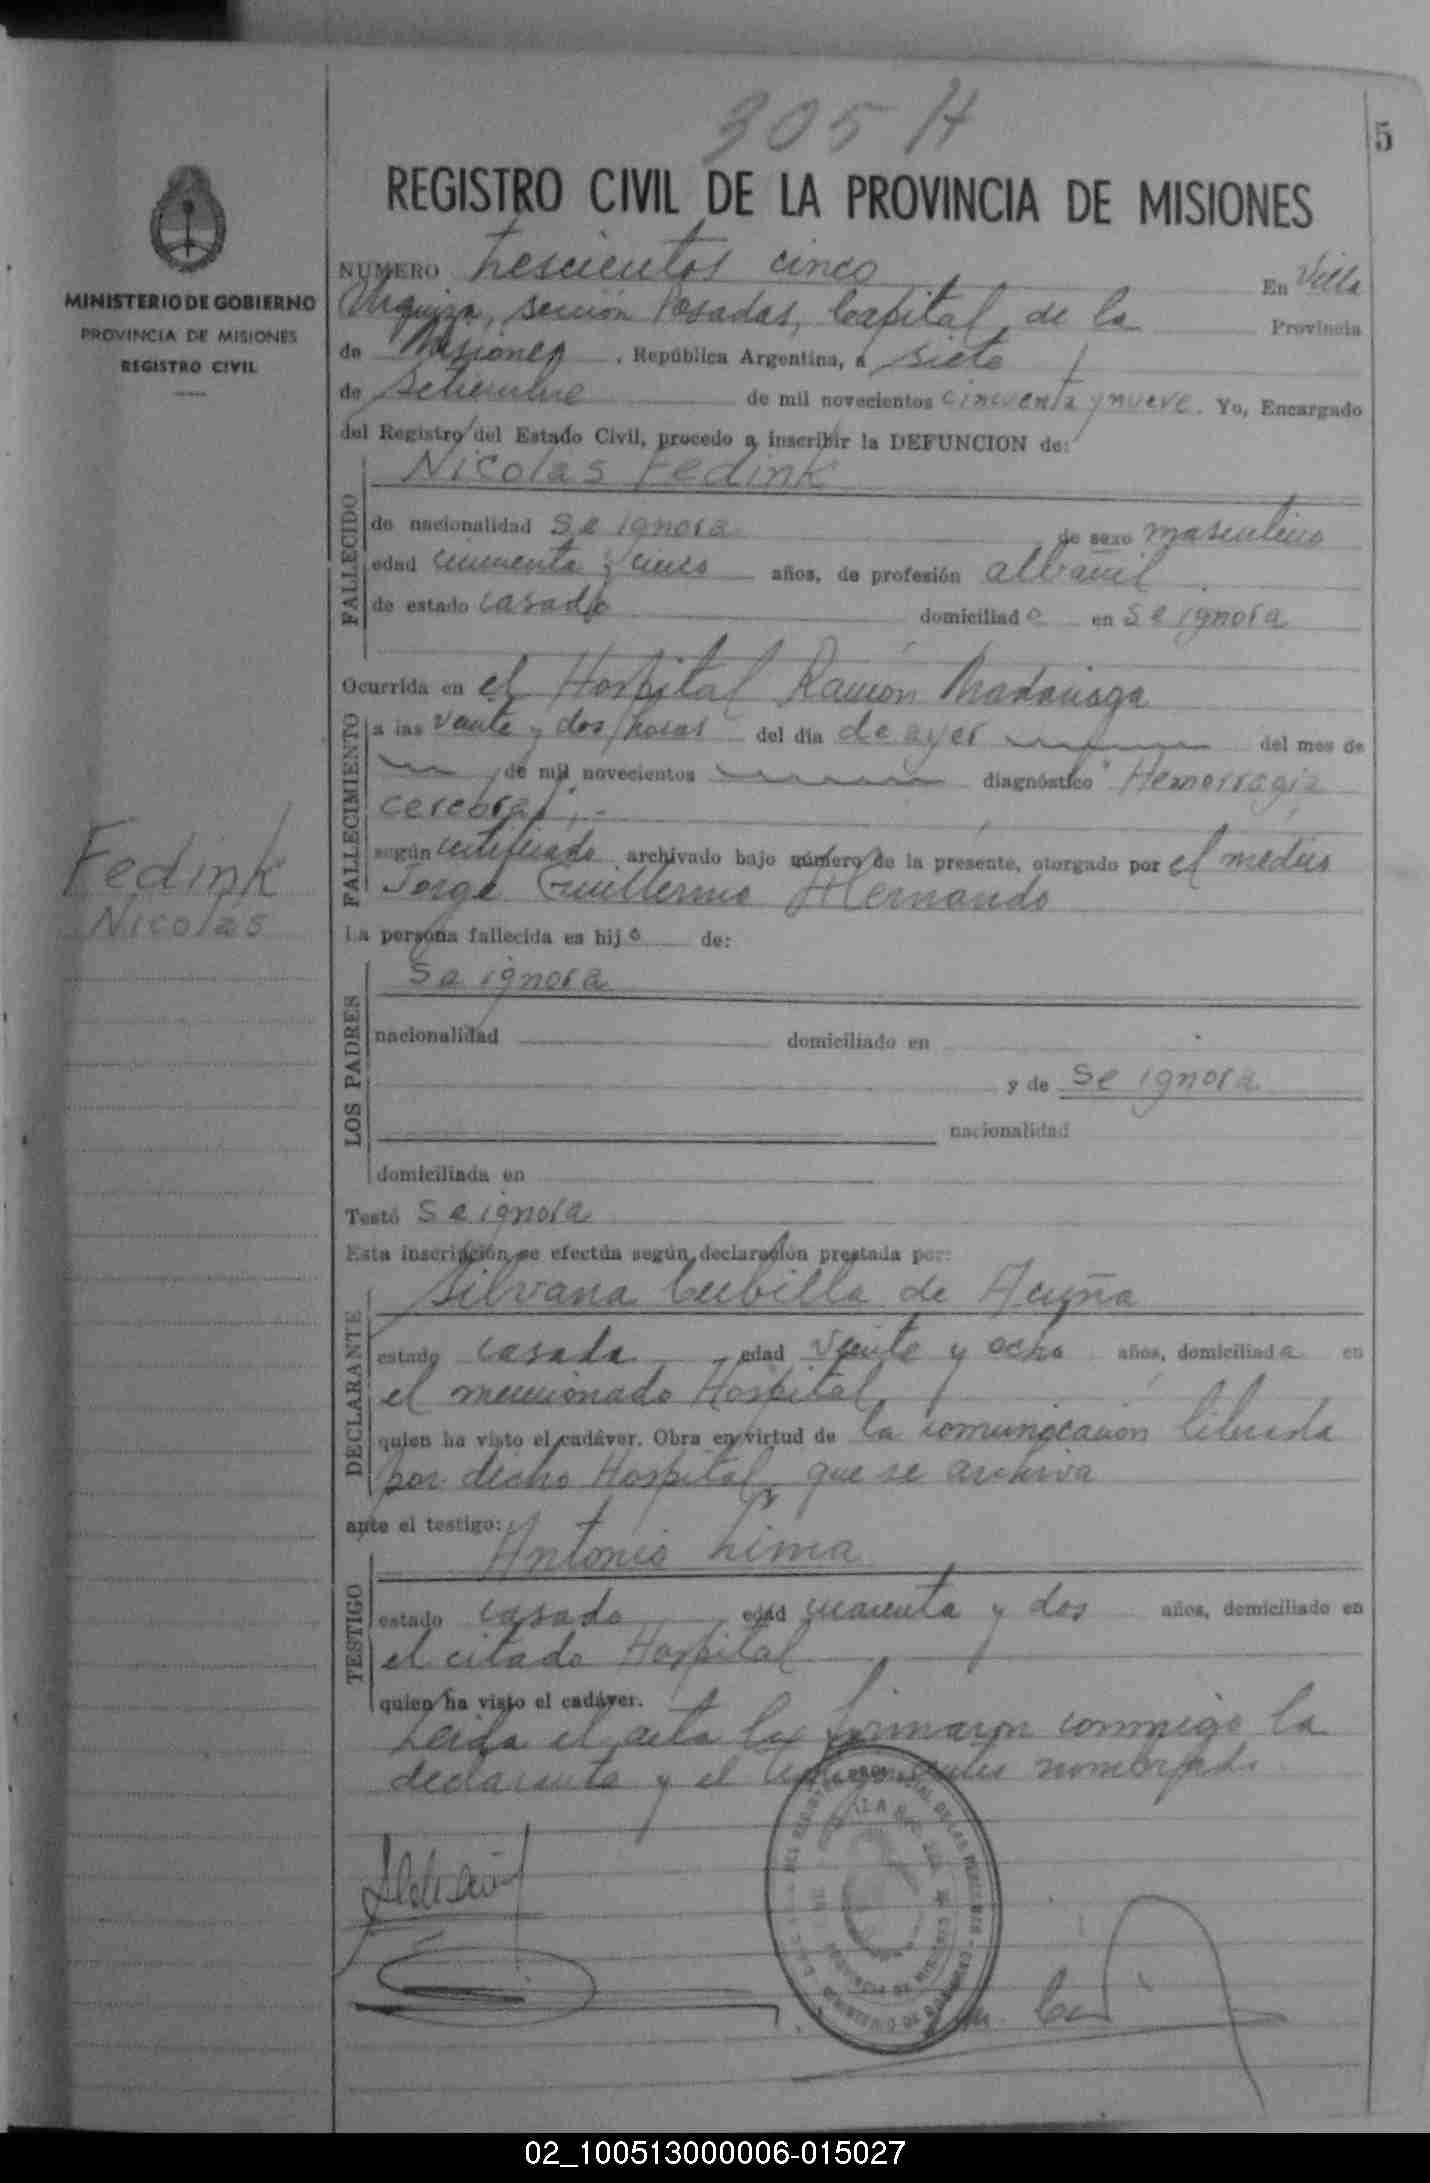 305 H
5
REGISTRO CIVIL DE LA PROVINCIA DE MISIONES
MINISTERIO DE GOBIERNO
PROVINCIA DE MISIONES
REGISTRO CIVIL
NUMERO trescientos cinco En Villa
Urquiza, sección Posadas, Capital de la Provincia
de Misiones, República Argentina, a siete
de setiembre de mil novecientos cincuenta y nueve. Yo, Encargado
del Registro del Estado Civil, procedo a inscribir la DEFUNCION de:
Nicolas Fedink
FALLECIDO
de nacionalidad se ignora de sexo masculino
edad cincuenta y cinco años, de profesión albañil
de estado casado domiciliado en se ignora
Ocurrida en el Hospital Ramón Madariaga
FALLECIMIENTO
a las veinte y dos horas del día de ayer del mes de
de mil novecientos diagnóstico "Hemorragia
cerebral";-
según certificado archivado bajo número de la presente, otorgado por el médico
Jorge Guillermo Hernando
Fedink
Nicolas
La persona fallecida es hijo de:
LOS PADRES
Se ignora
nacionalidad domiciliado en
y de se ignora
nacionalidad
domiciliada en
Testó se ignora
Esta inscripción se efectúa según declaración prestada por:
DECLARANTE
Silvana Cubilla de Acuña
estado casada edad veinte y ocho años, domiciliada en
el mencionado Hospital
quien ha visto el cadáver. Obra en virtud de la comunicación librada
por dicho Hospital, que se archiva
ante el testigo:
TESTIGO
Antonio Lima
estado casado edad cuarenta y dos años, domiciliado en
el citado Hospital
quien ha visto el cadáver.
Leida el acta la firmaron conmigo la
declarante y el testigo antes nombrado.
02_100513000006-015027